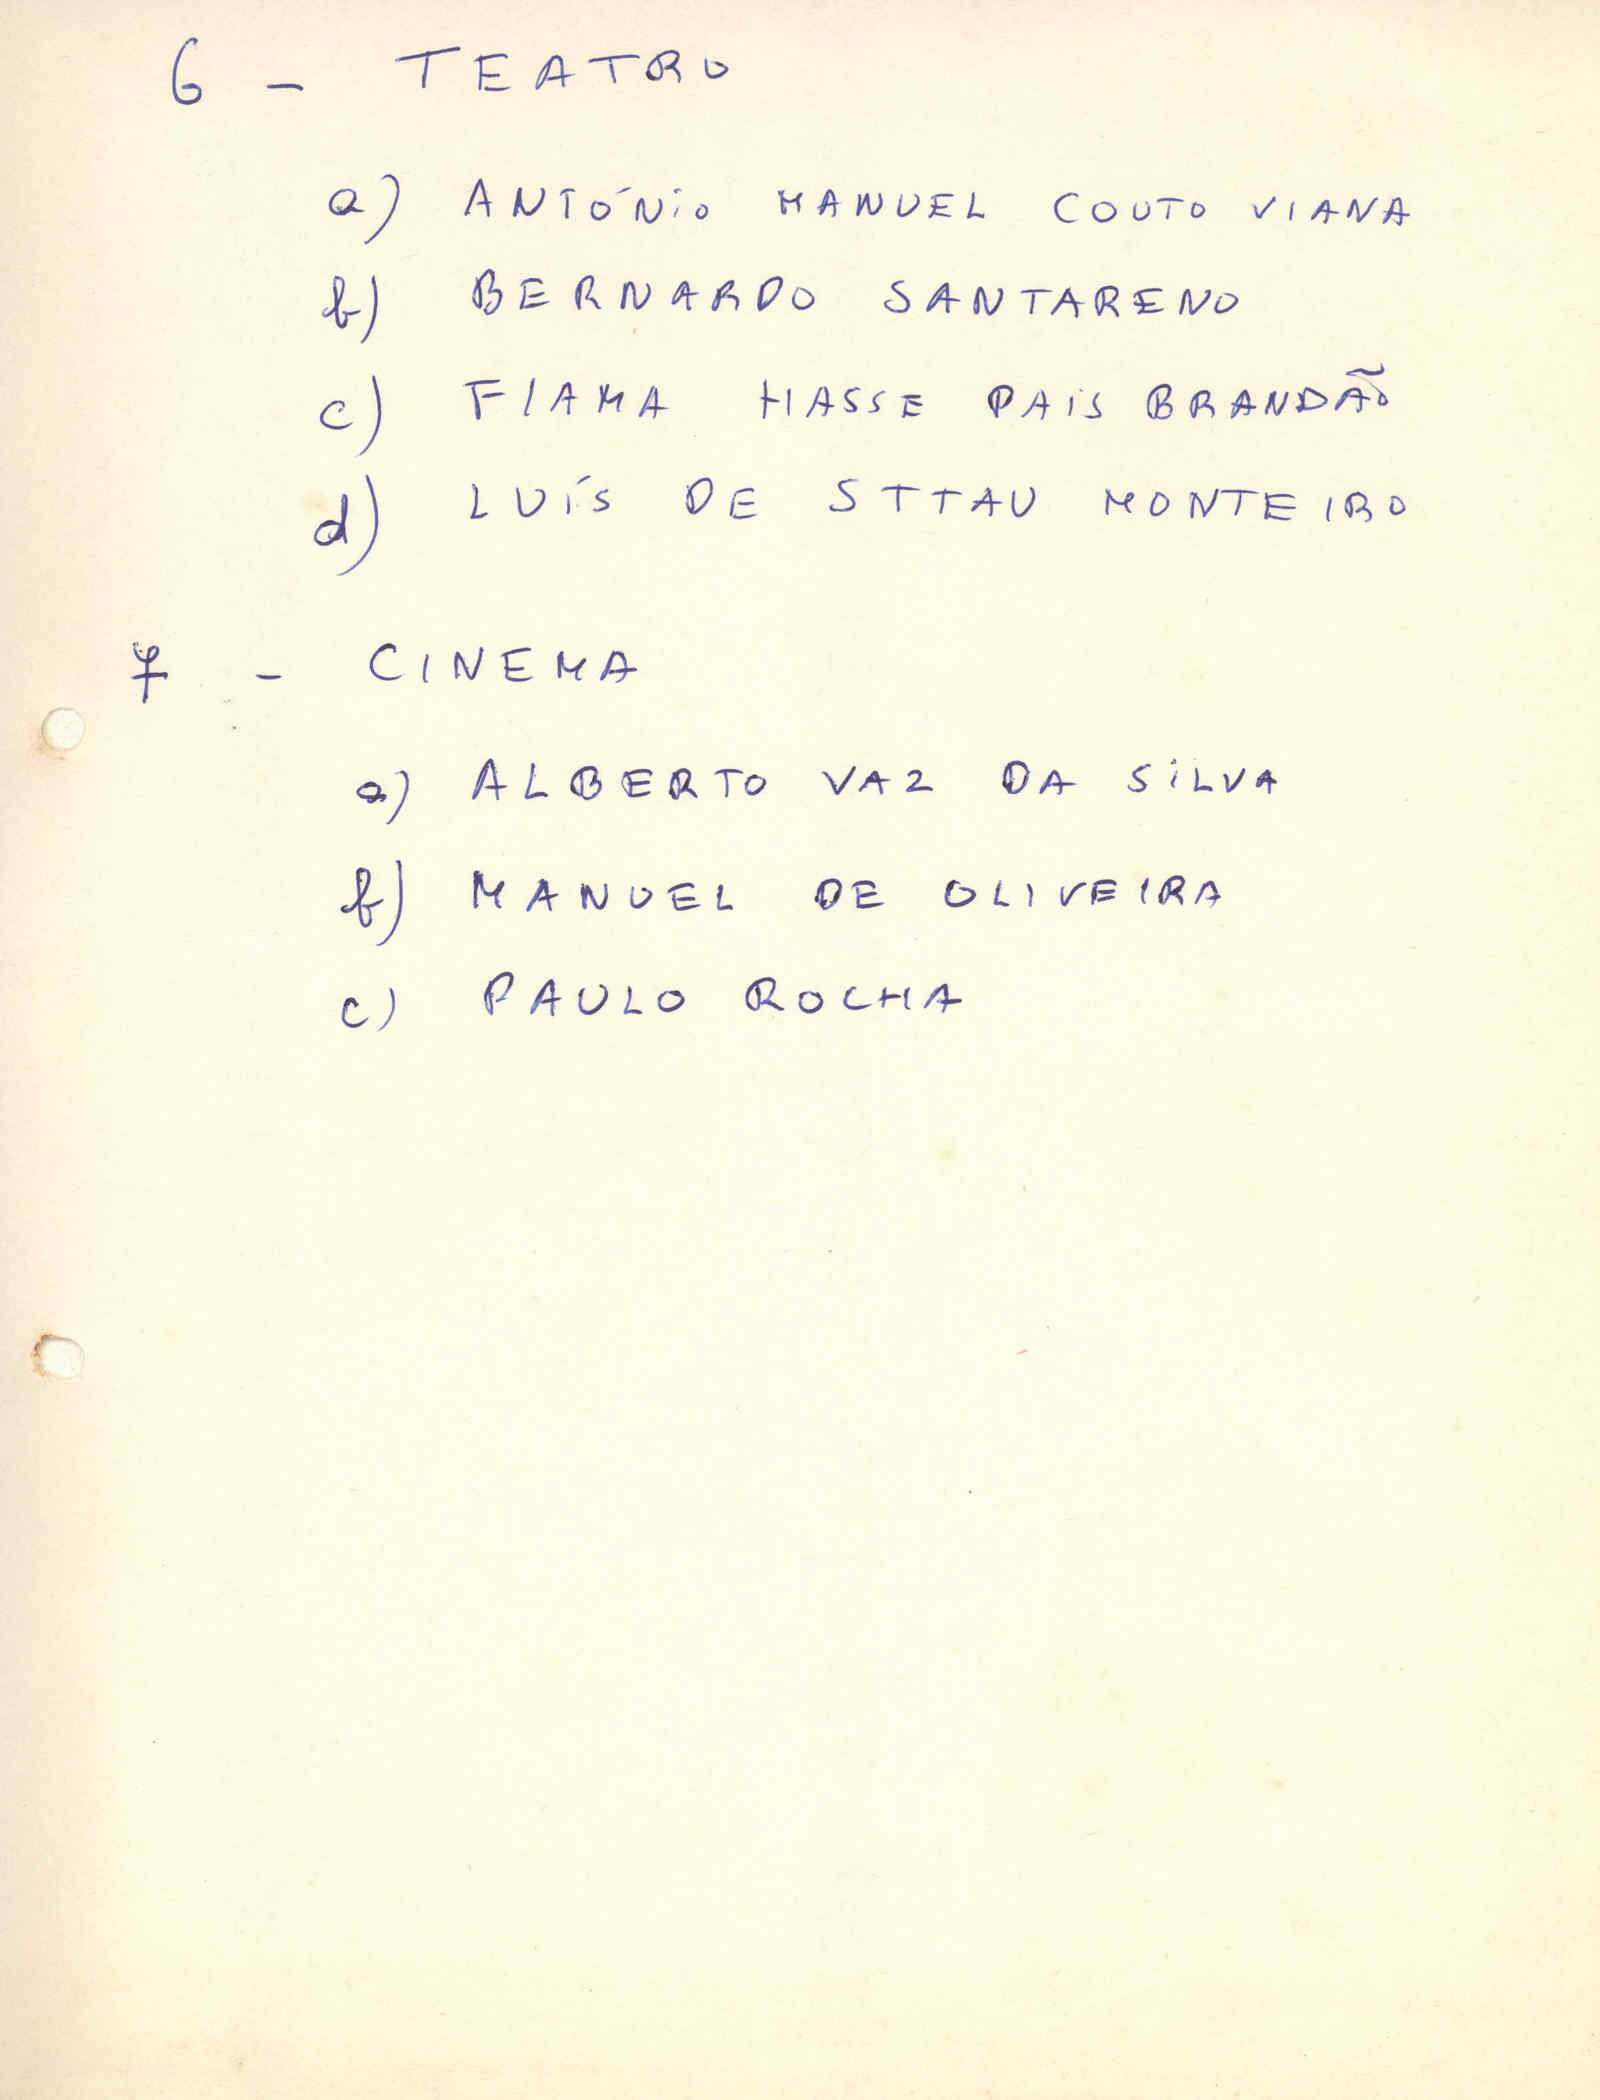 6 - TEATRO
a) ANTÓNIO MANUEL COUTO VIANA
b) BERNARDO SANTARENO
c) FIAMA HASSE PAIS BRANDÃO
d) LUÍS DE STTAU MONTEIRO
7 - CINEMA
a) ALBERTO VAZ DA SILVA
b) MANUEL DE OLIVEIRA
c) PAULO ROCHA